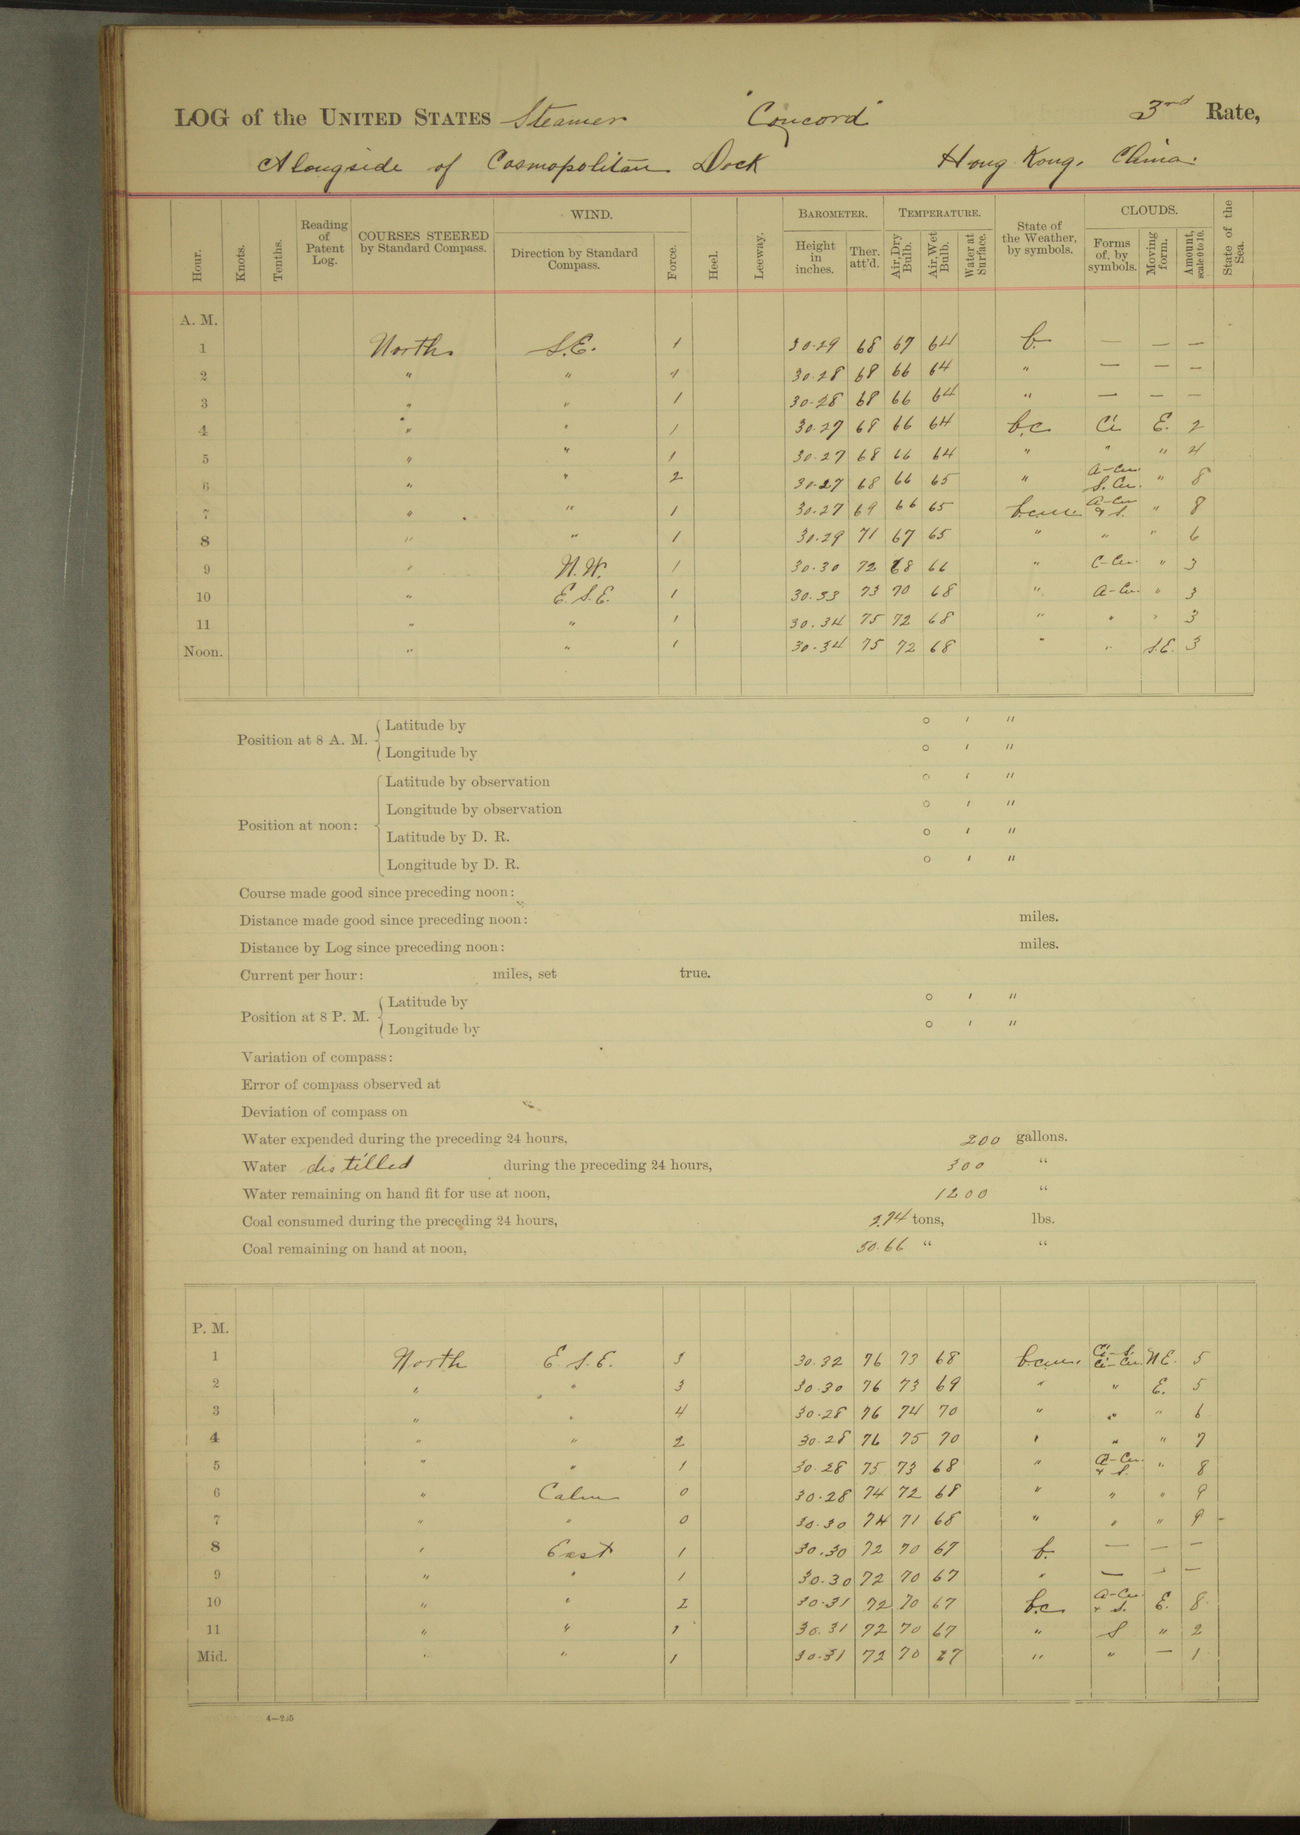 LOG of the UNITED STATES Steamer "Concord" 3rd Rate,
Alongside of Cosmopolitan Dock Hong Kong, China.
Hour. Knots. Tenths. Reading of Patent Log. COURSES STEERED by Standard Compass. WIND. Direction by Standard Compass. Force. Heel. Leeway. BAROMETER. Height in inches. Ther. att'd. TEMPERATURE. Air, Dry Bulb. Air, Wet Bulb. Water at Surface. State of the Weather, by symbols. CLOUDS. Forms of, by symbols. Moving form. Amount, scale 0 to 10. State of the Sea.
A. M.
1 North S.E. 1 30.29 68 67 64 b. — — —
2 " " 1 30.28 68 66 64 " — — —
3 " " 1 30.28 68 66 64 " — — —
4 " " 1 30.27 68 66 64 b.c Ci E. 2
5 " " 1 30.27 68 66 64 " " " 4
6 " " 2 30.27 68 66 65 " A-Cu. S. Cu. " 8
7 " " 1 30.27 69 66 65 b.c.m. A-Cu & S. " 8
8 " " 1 30.29 71 67 65 " " " 6
9 " N.W. 1 30.30 72 68 66 " C-Cu. " 3
10 " E.S.E. 1 30.33 73 70 68 " A-Cu. " 3
11 " " 1 30.34 75 72 68 " " " 3
Noon. " " 1 30.34 75 72 68 " " S.E. 3
Position at 8 A. M. Latitude by ° ' "
Longitude by ° ' "
Position at noon: Latitude by observation ° ' "
Longitude by observation ° ' "
Latitude by D. R. ° ' "
Longitude by D. R. ° ' "
Course made good since preceding noon:
Distance made good since preceding noon: miles.
Distance by Log since preceding noon: miles.
Current per hour: miles, set true.
Position at 8 P. M. Latitude by ° ' "
Longitude by ° ' "
Variation of compass:
Error of compass observed at
Deviation of compass on
Water expended during the preceding 24 hours, 200 gallons.
Water distilled during the preceding 24 hours, 300 "
Water remaining on hand fit for use at noon, 1200 "
Coal consumed during the preceding 24 hours, 2.94 tons, lbs.
Coal remaining on hand at noon, 50.66 " "
P. M.
1 North E.S.E. 3 30.32 76 73 68 b.c.m. Ci-S. Ci-Cu. N.E. 5
2 " " 3 30.30 76 73 69 " " E. 5
3 " " 4 30.28 76 74 70 " " " 6
4 " " 2 30.28 76 75 70 " " " 7
5 " " 1 30.28 75 73 68 " A-Cu. & S. " 8
6 " Calm 0 30.28 74 72 68 " " " 9
7 " " 0 30.30 74 71 68 " " " 9
8 " East 1 30.30 72 70 67 b. — — —
9 " " 1 30.30 72 70 67 " — — —
10 " " 2 30.31 72 70 67 b.c A-Cu. & S. E. 8
11 " " 1 30.31 72 70 67 " S " 2
Mid. " " 1 30.31 72 70 67 " " — 1